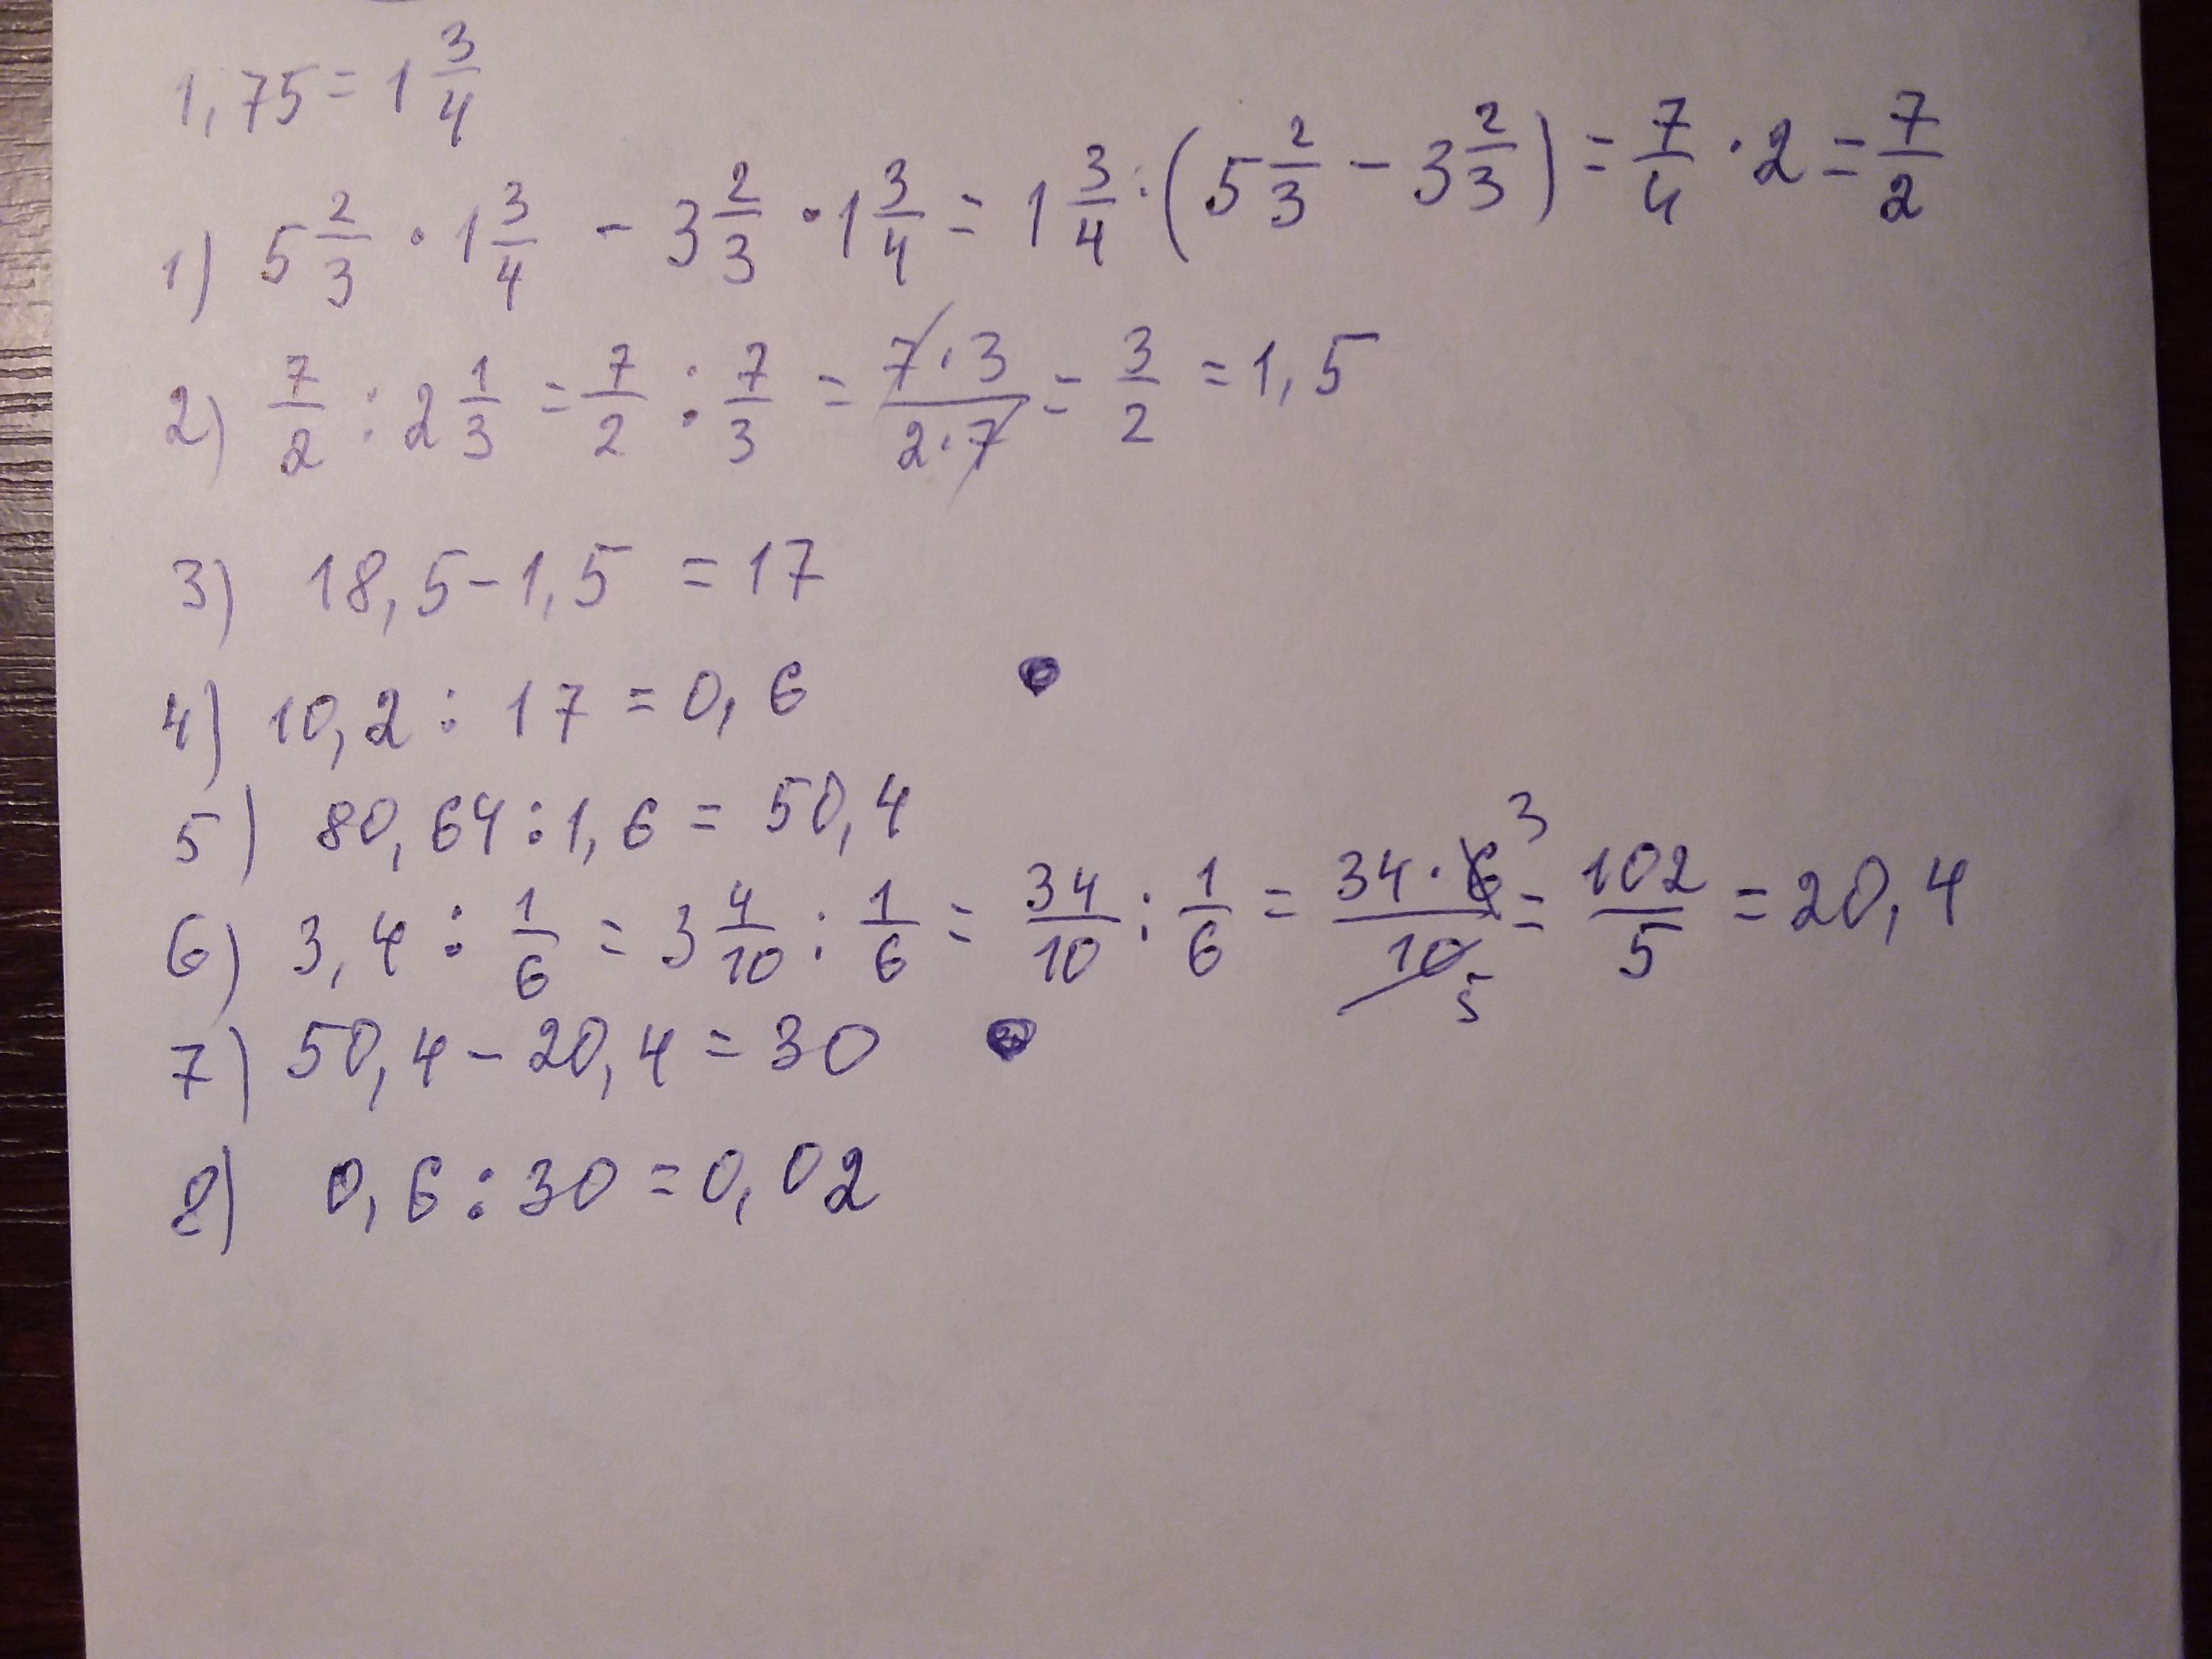 1,75 = 1 3/4
1) 5 2/3 · 1 3/4 - 3 2/3 · 1 3/4 = 1 3/4 · (5 2/3 - 3 2/3) = 7/4 · 2 = 7/2
2) 7/2 : 2 1/3 = 7/2 : 7/3 = 7·3/2·7 = 3/2 = 1,5
3) 18,5 - 1,5 = 17
4) 10,2 : 17 = 0,6
5) 80,64 : 1,6 = 50,4
6) 3,4 : 1/6 = 3 4/10 : 1/6 = 34/10 : 1/6 = 34·6 3/10 5 = 102/5 = 20,4
7) 50,4 - 20,4 = 30
8) 0,6 : 30 = 0,02